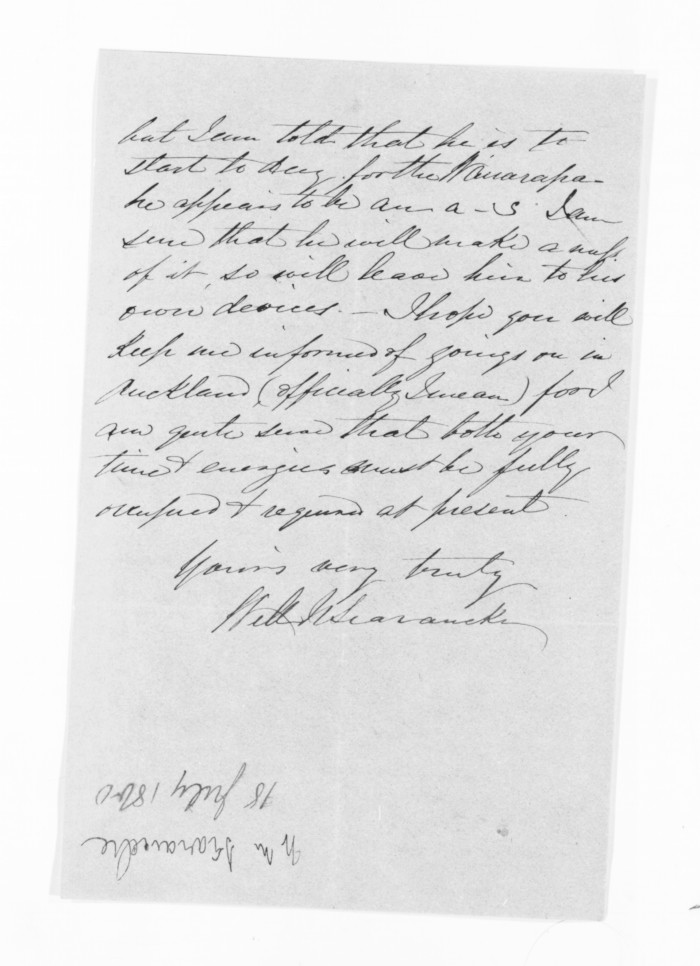 but I am told that he is to
start to day for the Wairarapa -
he appears to be an a-s I am
sure that he will make a
of it, so will leave him to his
own devices. - I hope you will
keep me informed of goings on in
Auckland (officially I mean) for I
am quite sure that both your
time & energies must be fully
occupied & required at present.
Yours very truly
Will N Searancke
18 July 1860
W N Searancke